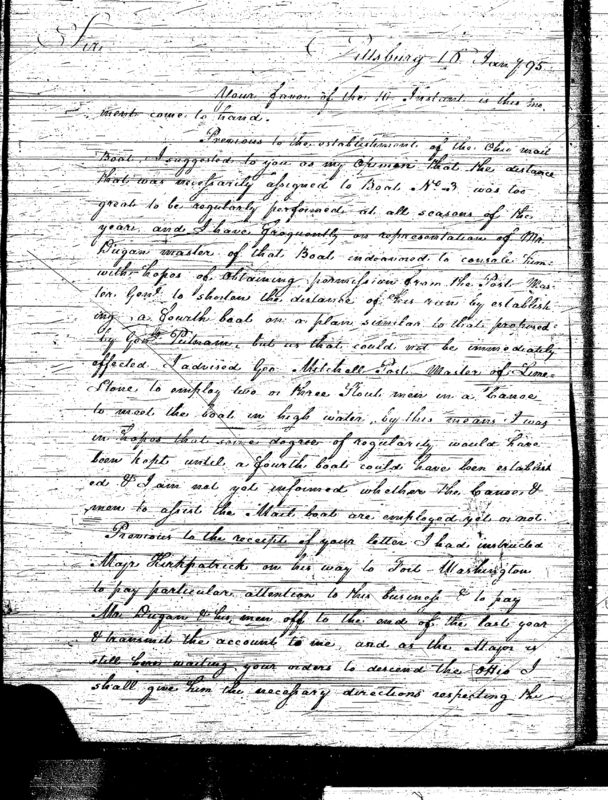 Sir, Pittsburg 16 Jany 95
Your favor of the 10 Instant is this mo-
ment come to hand.
Previous to the establishment of the Ohio mail
Boat, I suggested to you as my Opinion that the distance
that was necessarily assigned to Boat No 3 was too
great to be regularly performed at all seasons of the
year, and I have frequently on representation of Mr
Dugan master of that Boat endeavored to console him
with hopes of obtaining permission from the Post Mas-
ter Genl to shorten the distance of his run by establish
ing a fourth boat on a plan similar to that proposed
by Genl Putnam, but as that could not be immediately
effected I advised Geo. Mitchell Post Master of Lime-
Stone to employ two or three stout men in a Canoe
to meet the boat in high water, by this means I was
in hopes that some degree of regularity would have
been kept until a fourth boat could have been establish
ed & I am not yet informed whether the Canoe &
men to assist the Mail boat are employed yet or not.
Previous to the receipt of your letter I had instructed
Majr Kirkpatrick on his way to Fort Washington
to pay particular attention to this business & to pay
Mr Dugan & his men off to the end of the last year
& transmit the account to me, and as the Major is
still here waiting your orders to descend the Ohio I
shall give him the necessary directions respecting the